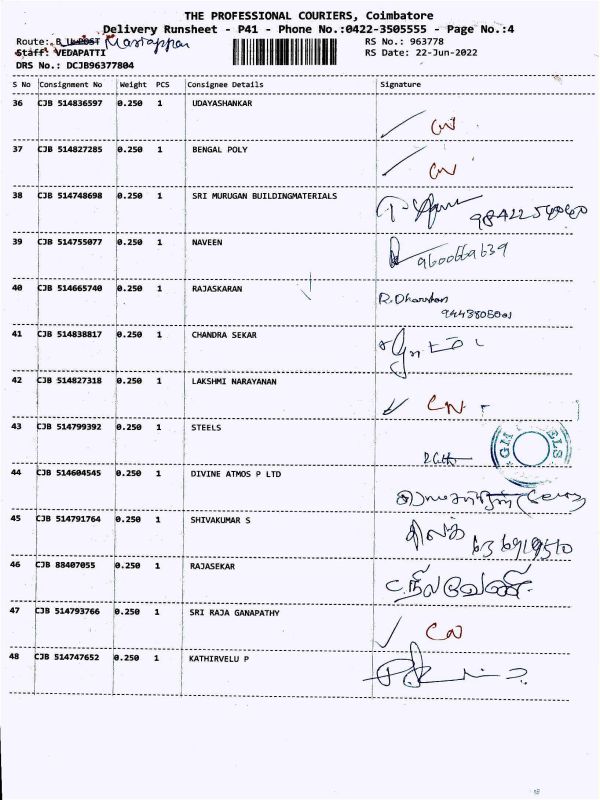 THE PROFESSIONAL COURIERS, Coimbatore
Delivery Runsheet - P41 - Phone No.:0422-3505555 - Page No.:4
Route:
RS No.: 963778
Staff: VEDAPATTI
RS Date: 22-Jun-2022
DRS No.: DCJB96377804
S No Consignment No Weight PCS Consignee Details Signature
36 CJB 514836597 0.250 1 UDAYASHANKAR
37 CJB 514827285 0.250 1 BENGAL POLY
38 CJB 514748698 0.250 1 SRI MURUGAN BUILDINGMATERIALS
39 CJB 514755077 0.250 1 NAVEEN
40 CJB 514665740 0.250 1 RAJASKARAN
R. Dharshan
41 CJB 514838817 0.250 1 CHANDRA SEKAR
42 CJB 514827318 0.250 1 LAKSHMI NARAYANAN
43 CJB 514799392 0.250 1 STEELS
44 CJB 514604545 0.250 1 DIVINE ATMOS P LTD
45 CJB 514791764 0.250 1 SHIVAKUMAR S
46 CJB 88407055 0.250 1 RAJASEKAR
47 CJB 514793766 0.250 1 SRI RAJA GANAPATHY
48 CJB 514747652 0.250 1 KATHIRVELU P